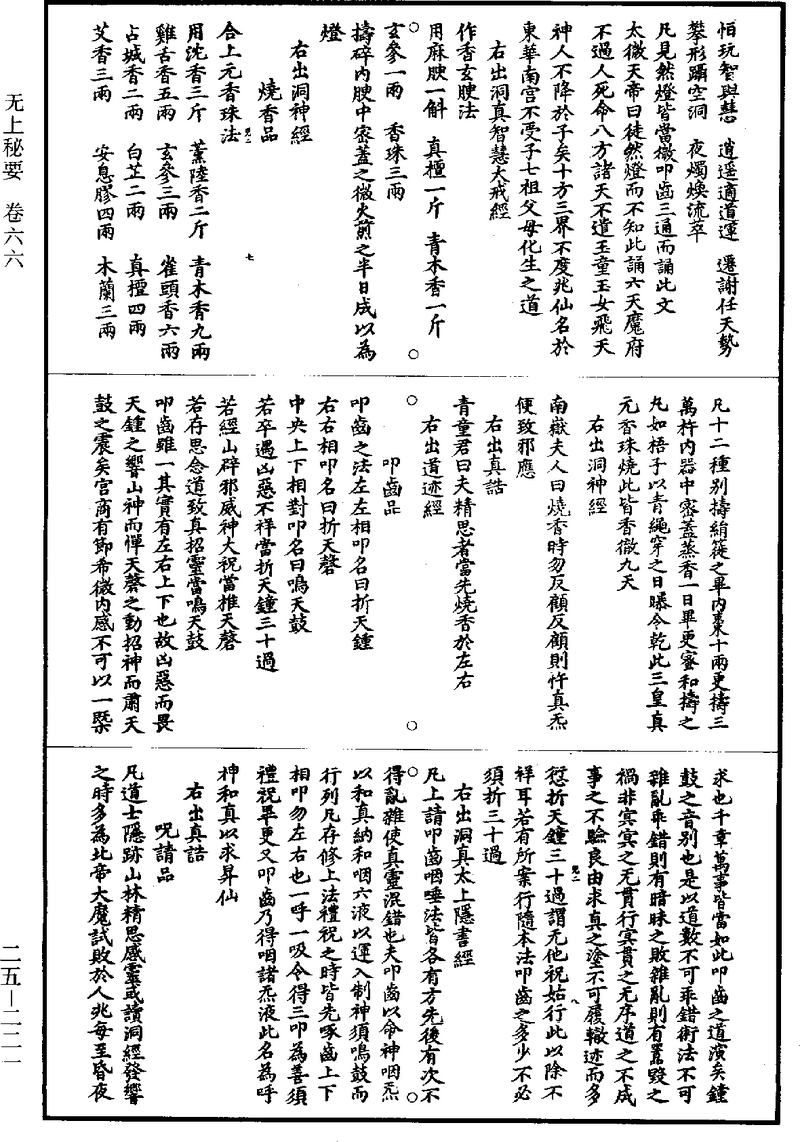 恬玩智與慧　逍遥適道運　遷謝任天勢
攀形躡空洞　夜燭煥流萃
凡見然燈皆當微叩齒三通而誦此文
太微天帝曰徒然燈而不知此誦六天魔府
不過人死命八方諸天不遣玉童玉女飛天
神人不降於子矣十方三界不度兆仙名於
東華南宫不受子七祖父母化生之道
右出洞真智慧大戒經
作香玄腴法
用麻腴一斛　真檀一斤　青木香一斤
玄參一兩　香珠三兩
擣碎内腴中密蓋之微火煎之半日成以為
燈
右出洞神經
燒香品
合上元香珠法
用沈香三斤　薰陸香二斤　青木香九兩
雞舌香五兩　玄參三兩　雀頭香六兩
占城香二兩　白芷二兩　真檀四兩
艾香三兩　安息膠四兩　木蘭三兩
凡十二種别擣絹簁之畢内棗十兩更擣三
萬杵内器中密蓋蒸香一日畢更蜜和擣之
丸如梧子以青繩穿之日曝令乾此三皇真
元香珠燒此皆香徹九天
右出洞神經
南嶽夫人曰燒香時勿反顧反顧則忤真炁
便致邪應
右出真誥
青童君曰夫精思者當先燒香於左右
右出道迹經
叩齒品
叩齒之法左左相叩名曰折天鍾
右右相叩名曰折天磬
中央上下相對叩名曰鳴天鼓
若卒遇凶惡不祥當折天鍾三十過
若經山辟邪威神大祝當椎天磬
若存思念道致真招靈當鳴天鼓
叩齒雖一其實有左右上下也故凶惡而畏
天鍾之響山神而憚天磬之動招神而肅天
鼓之震矣宫商有節希微内感不可以一槩
求也千章萬事皆當如此叩齒之道演矣鍾
鼓之音别也是以道數不可乖錯術法不可
雜亂乖錯則有暗昧之敗雜亂則有罵毀之
禍非冥冥之无貫行冥貫之无序道之不成
事之不驗良由求真之塗不可履轍迹而多
愆折天鍾三十過謂无他祝姑行此以除不
祥耳若有所案行隨本法叩齒之多少不必
須折三十過
右出洞真太上隱書經
凡上請叩齒咽唾法皆各有方先後有次不
得亂雜使真靈混錯也夫叩齒以命神咽炁
以和真納和咽六液以運入制神須鳴鼓而
行列凡存修上法禮祝之時皆先啄齒上下
相叩勿左右也一呼一吸令得三叩為善須
禮祝畢更又叩齒乃得咽諸炁液此名為呼
神和真以求昇仙
右出真誥
呪請品
凡道士隱跡山林精思感靈或讀洞經發響
之時多為北帝大魔試敗於人兆每至昏夜
无上秘要　卷六六
二五—二二一